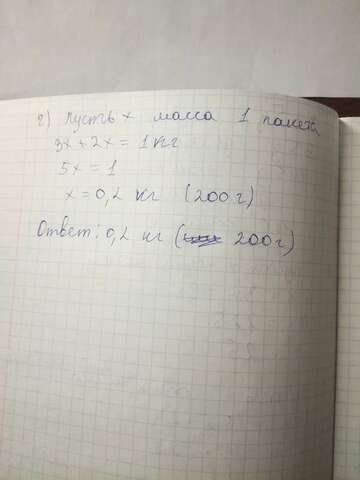 2) Пусть x масса 1 пакета
3x + 2x = 1 кг
5x = 1
x = 0,2 кг (200 г)
Ответ: 0,2 кг (200 г)